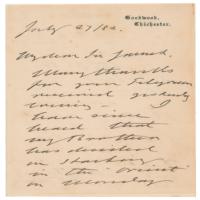 Goodwood,
Chichester.
July 27/82.
My dear Sir James.
Many thanks
for your Telegram
received yesterday
evening — I
have since
heard that
my Brother
has decided
on starting
in the "Orient"
on Monday